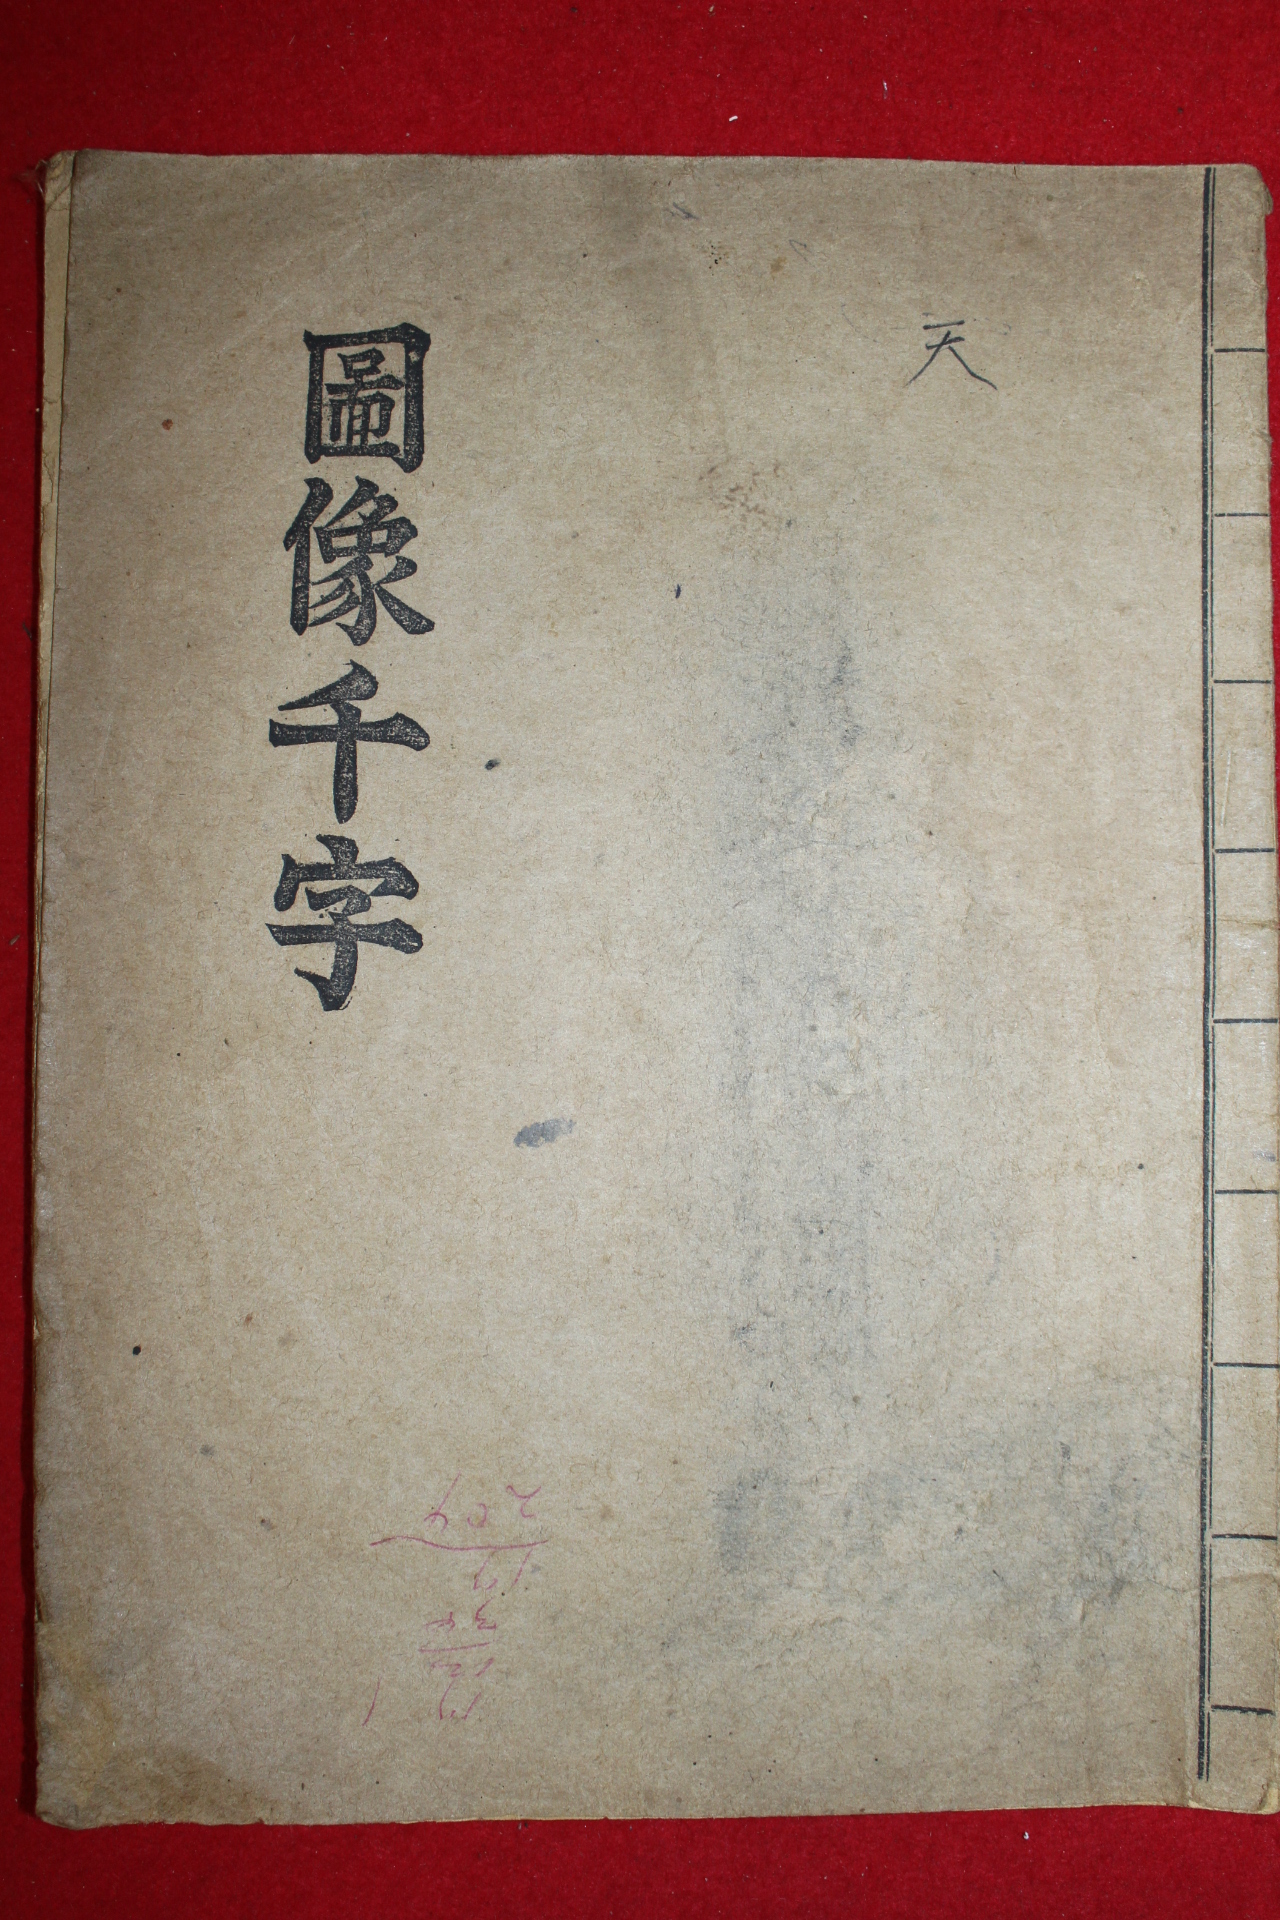 天
圖像千字